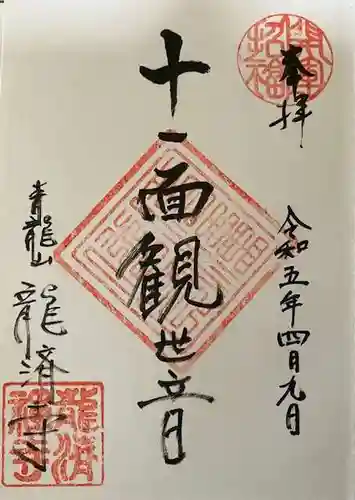 奉拝
令和五年四月九日
十一面観世音
青龍山
龍済寺